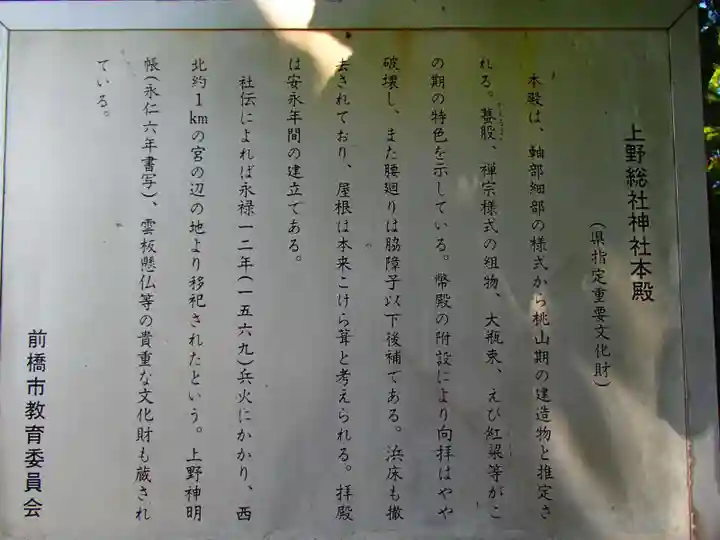 上野総社神社本殿
(県指定重要文化財)
本殿は、軸部細部の様式から桃山期の建造物と推定さ
れる。蟇股、禅宗様式の組物、大瓶束、えび紅梁等がこ
の期の特色を示している。幣殿の附設により向拝はやや
破壊し、また腰廻りは脇障子以下後補である。浜床も撤
去されており、屋根は本来こけら葺と考えられる。拝殿
は安永年間の建立である。
社伝によれば永禄一二年(一五六九)兵火にかかり、西
北約1kmの宮の辺の地より移祀されたという。上野神明
帳(永仁六年書写)、雲板懸仏等の貴重な文化財も蔵され
ている。
前橋市教育委員会